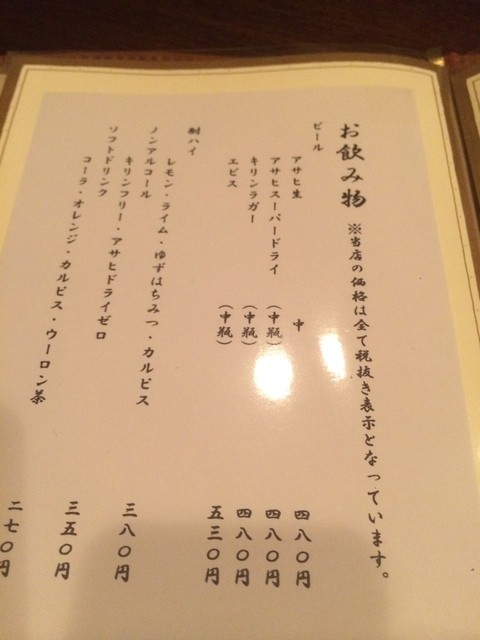 お飲み物 ※当店の価格は全て税抜き表示となっています。
ビール
アサヒ生 中 四八〇円
アサヒスーパードライ (中瓶) 四八〇円
キリンラガー (中瓶) 四八〇円
エビス (中瓶) 五三〇円
酎ハイ
レモン・ライム・ゆずはちみつ・カルピス 三八〇円
ノンアルコール
キリンフリー・アサヒドライゼロ 三五〇円
ソフトドリンク
コーラ・オレンジ・カルピス・ウーロン茶 二七〇円